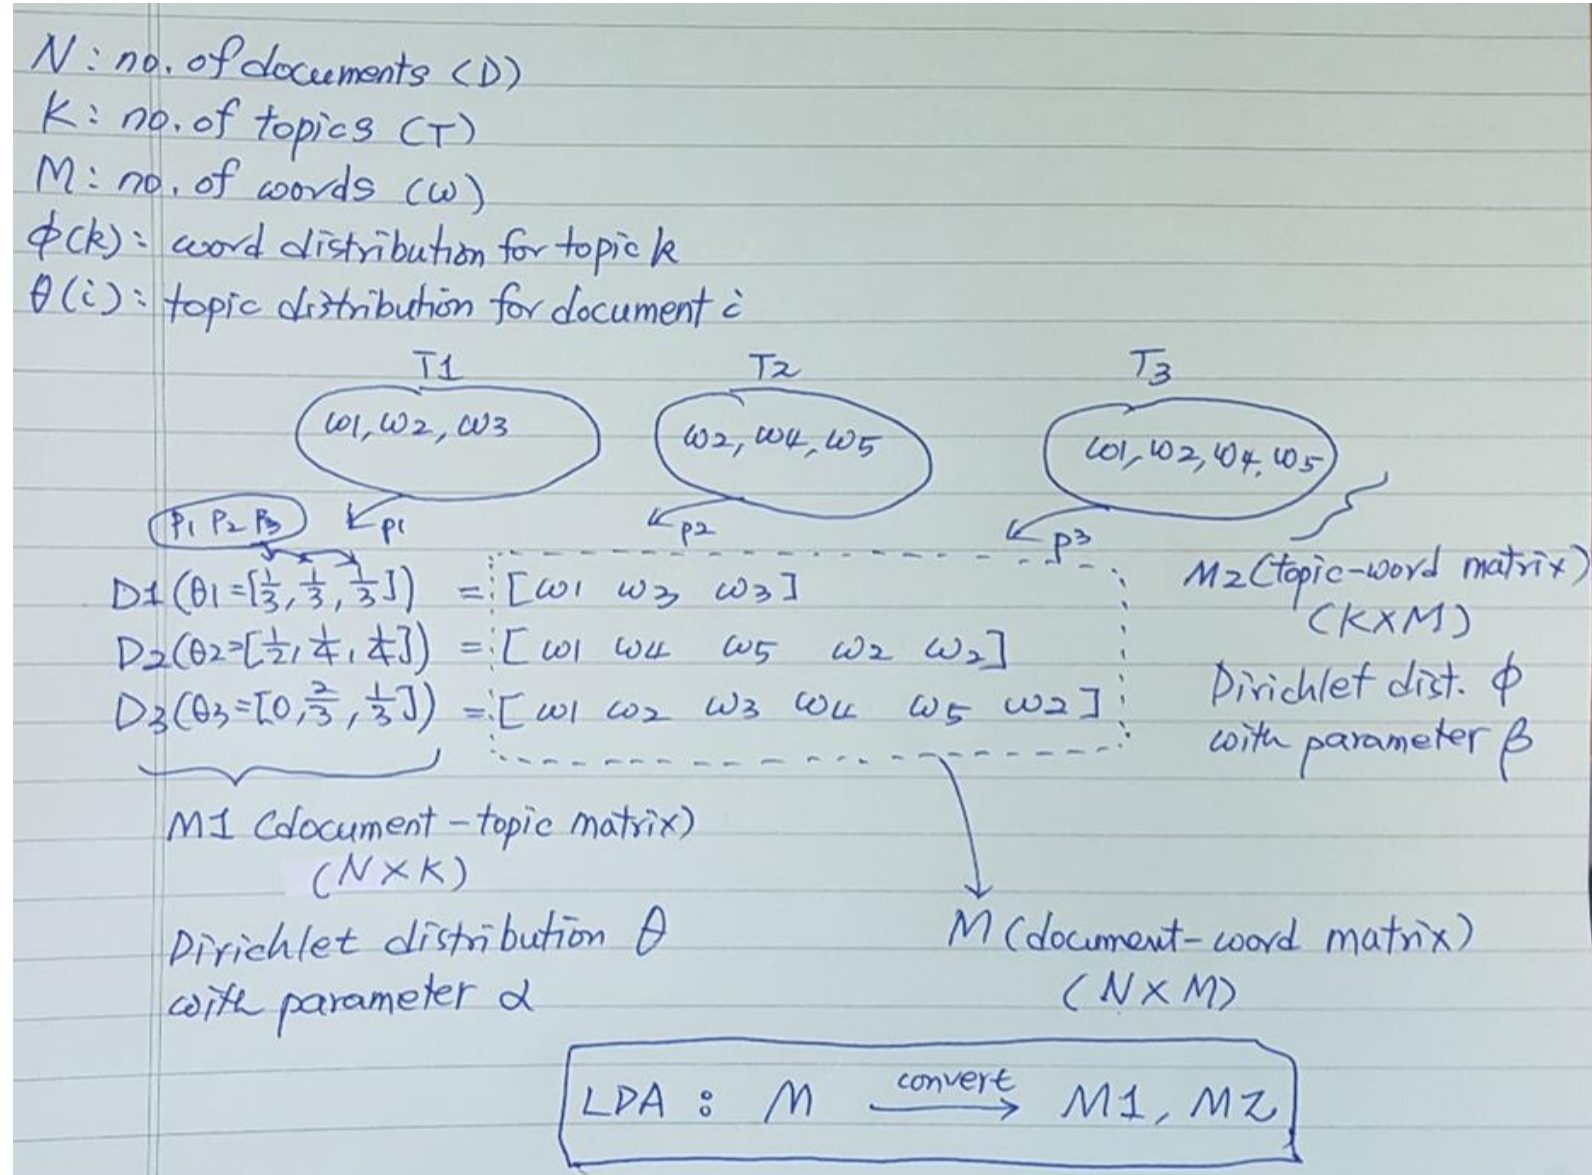 N: no. of documents (D)
K: no. of topics (T)
M: no. of words (ω)
ϕ(k): word distribution for topic k
θ(i): topic distribution for document i
T1 T2 T3
ω1, ω2, ω3 ω2, ω4, ω5 ω1, ω2, ω4, ω5
P1 P2 P3 p1 p2 p3
D1(θ1=[1/3, 1/3, 1/3]) = [ω1 ω3 ω3]
D2(θ2=[1/2, 1/4, 1/4]) = [ω1 ω4 ω5 ω2 ω2]
D3(θ3=[0, 2/3, 1/3]) = [ω1 ω2 ω3 ω4 ω5 ω2]
M2 (topic-word matrix)
(K×M)
Dirichlet dist. ϕ
with parameter β
M1 (document-topic matrix)
(N×K)
Dirichlet distribution θ
with parameter α
M (document-word matrix)
(N×M)
LDA : M convert → M1, M2